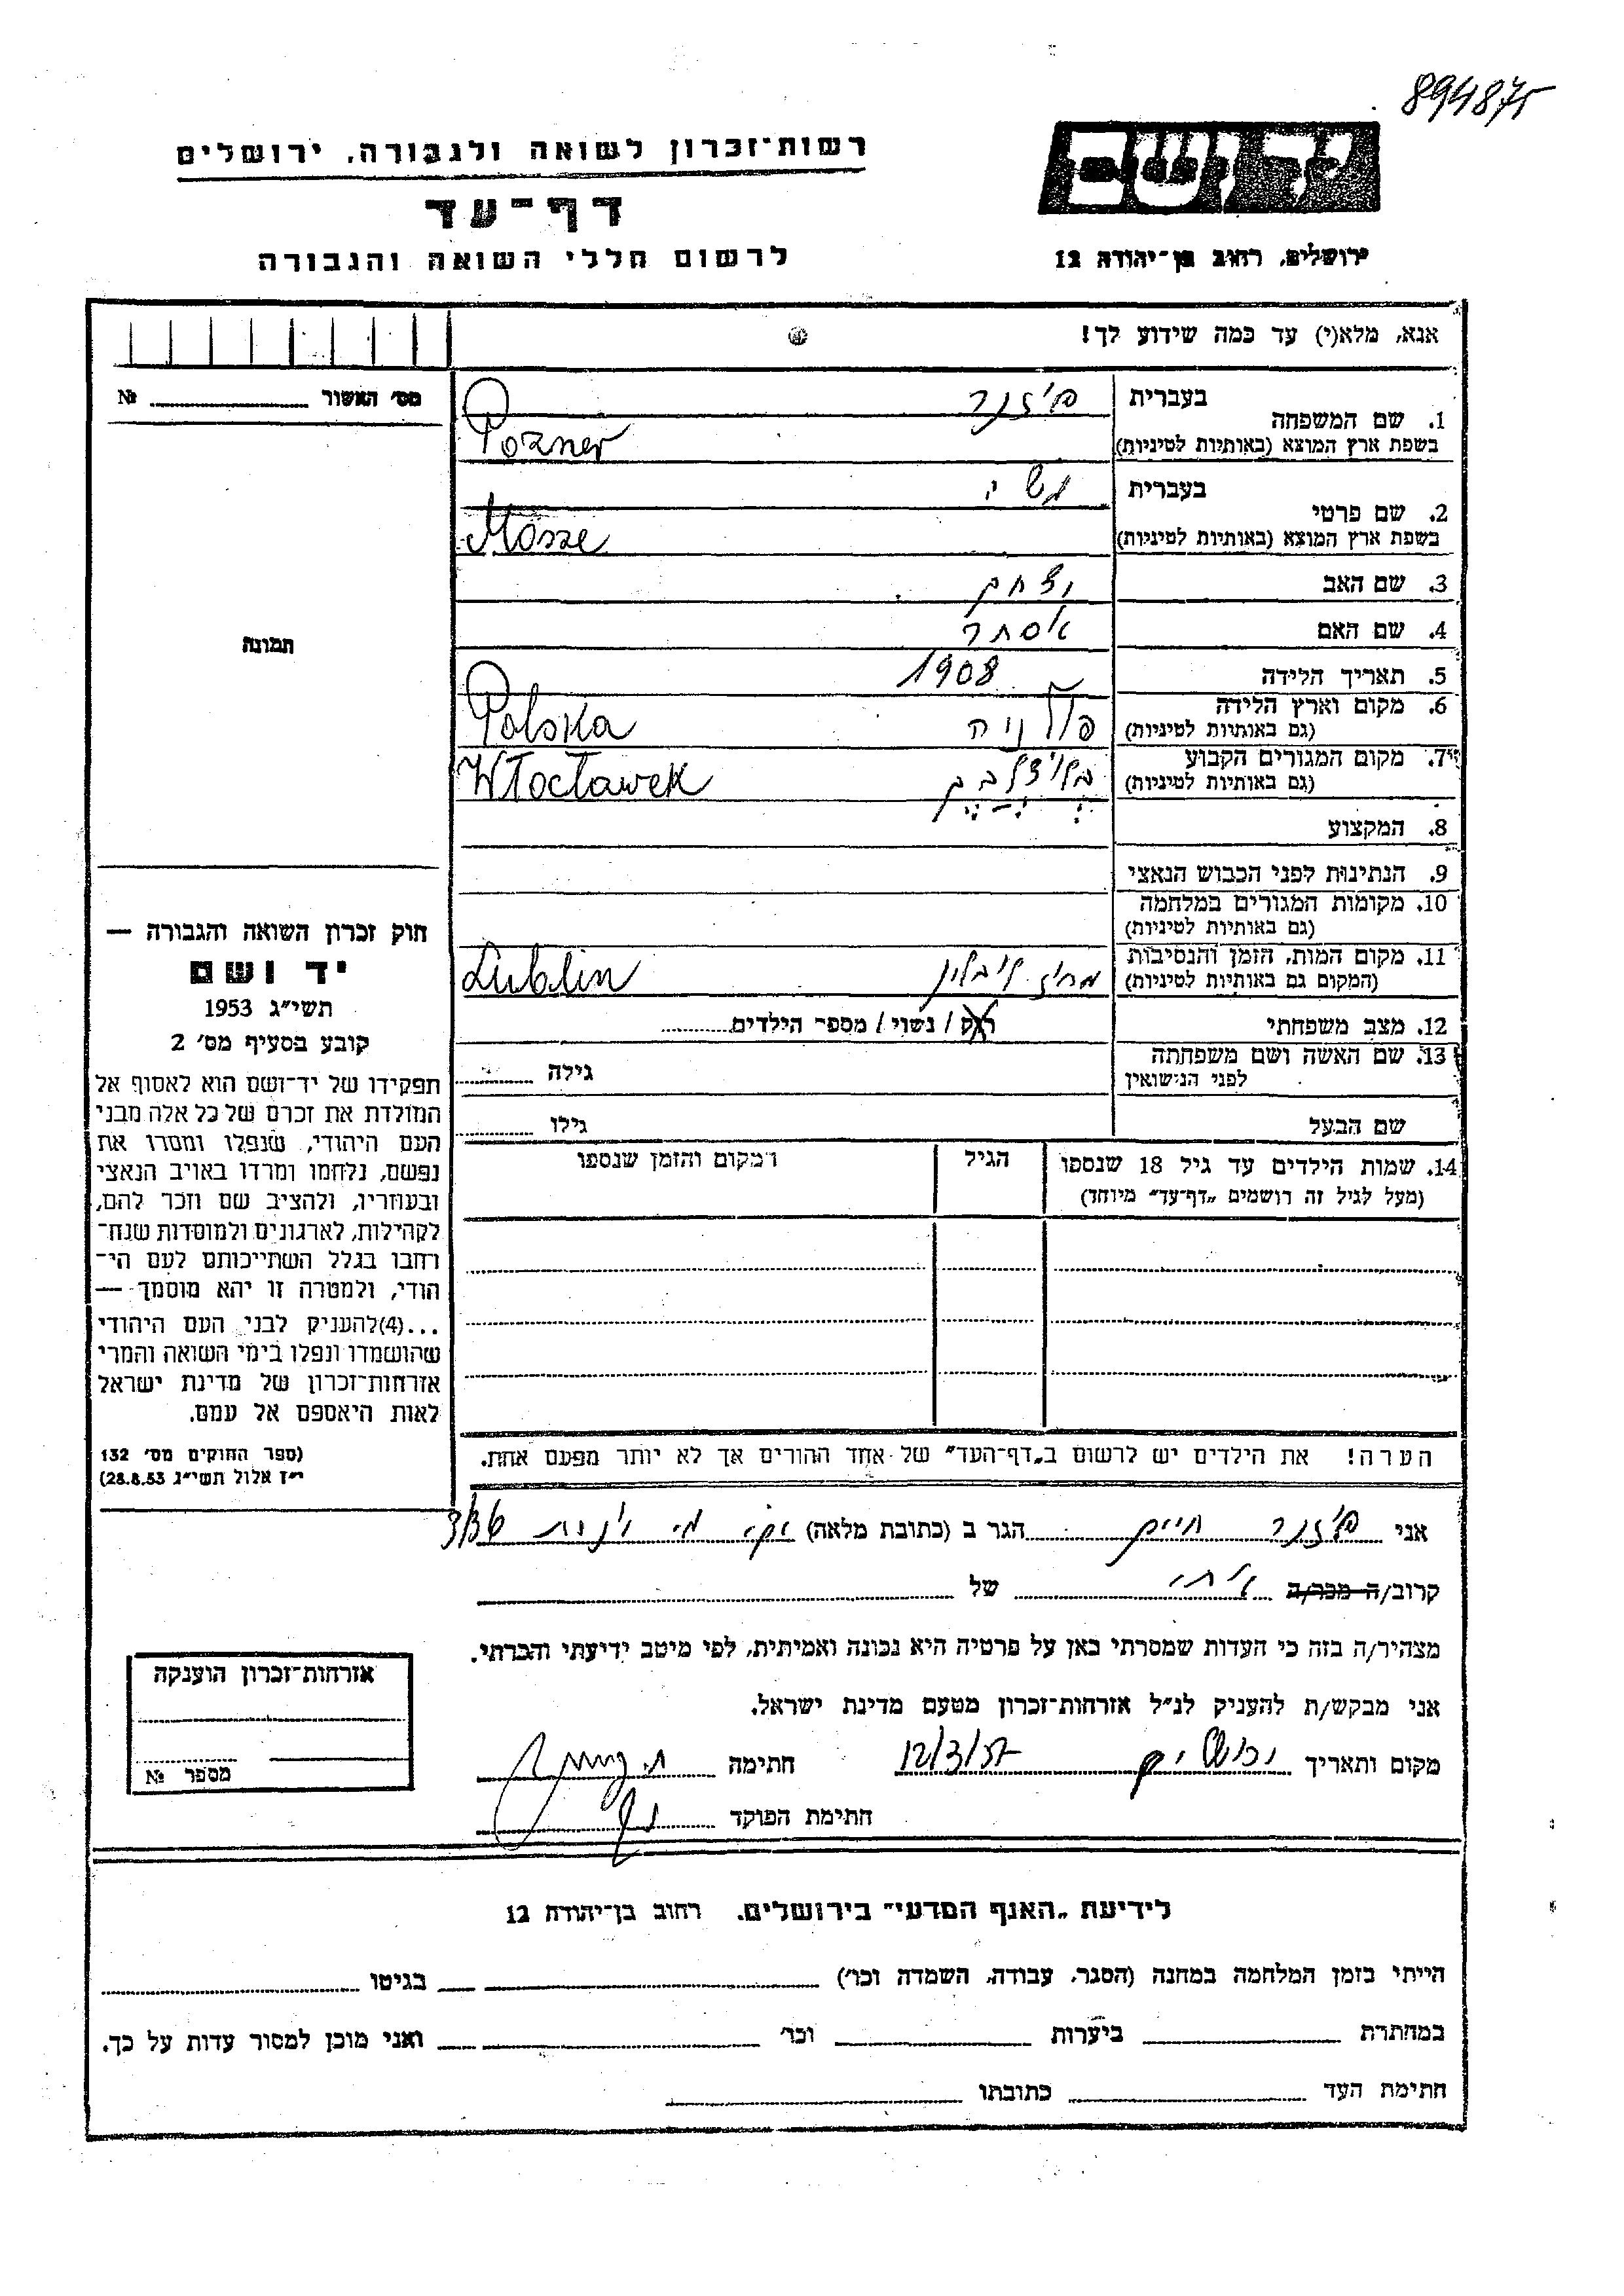 894875
רשות־זכרון לשואה ולגבורה, ירושלים
יד ושם
דף־עד
לרשום חללי השואה והגבורה
ירושלים, רחוב בן־יהודה 12
אנא, מלא(י) עד כמה שידוע לך!
מס׳ האשור №
1. שם המשפחה בעברית פוזנר
בשפת ארץ המוצא (באותיות לטיניות) Pozner
2. שם פרטי בעברית משה
בשפת ארץ המוצא (באותיות לטיניות) Mosze
3. שם האב
4. שם האם אסתר
תמונה
5. תאריך הלידה 1908
6. מקום וארץ הלידה פולניה Polska
(גם באותיות לטיניות)
7. מקום המגורים הקבוע Włocławek
(גם באותיות לטיניות)
8. המקצוע
9. הנתינות לפני הכבוש הנאצי
10. מקומות המגורים במלחמה
(גם באותיות לטיניות)
11. מקום המות, הזמן והנסיבות לובלין Lublin
(המקום גם באותיות לטיניות)
12. מצב משפחתי רוק / נשוי / מספר הילדים
13. שם האשה ושם משפחתה גילה
לפני הנישואין
שם הבעל גילו
14. שמות הילדים עד גיל 18 שנספו הגיל המקום והזמן שנספו
(מעל לגיל זה רושמים „דף־עד” מיוחד)
חוק זכרון השואה והגבורה —
יד ושם
תשי״ג 1953
קובע בסעיף מס׳ 2
תפקידו של יד־ושם הוא לאסוף אל
המולדת את זכרם של כל אלה מבני
העם היהודי, שנפלו ומסרו את
נפשם, נלחמו ומרדו באויב הנאצי
ובעוזריו, ולהציב שם וזכר להם,
לקהילות, לארגונים ולמוסדות שנח־
רחבו בגלל השתייכותם לעם הי־
הודי, ולמטרה זו יהא מוסמך —
...(4)להעניק לבני העם היהודי
שהושמדו ונפלו בימי השואה והמרי
אזרחות־זכרון של מדינת ישראל
לאות היאספם אל עמם.
(ספר החוקים מס׳ 132
י״ז אלול תשי״ג 28.8.53)
הערה! את הילדים יש לרשום ב„דף־העד” של אחד ההורים אך לא יותר מפעם אחת.
אני פוזנר חיים הגר ב (כתובת מלאה)
קרוב/ה מכר/ה אחי של
מצהיר/ה בזה כי העדות שמסרתי כאן על פרטיה היא נכונה ואמיתית, לפי מיטב ידיעתי והכרתי.
אני מבקש/ת להעניק לנ״ל אזרחות־זכרון מטעם מדינת ישראל.
מקום ותאריך ירושלים 12/3/57 חתימה
חתימת הפוקד
אזרחות־זכרון הוענקה
מספר №
לידיעת „האגף המדעי” בירושלים, רחוב בן־יהודה 12
הייתי בזמן המלחמה במחנה (הסגר, עבודה, השמדה וכו׳) בגיטו
במחתרת ביערות וכו׳ ואני מוכן למסור עדות על כך.
חתימת העד כתובתו